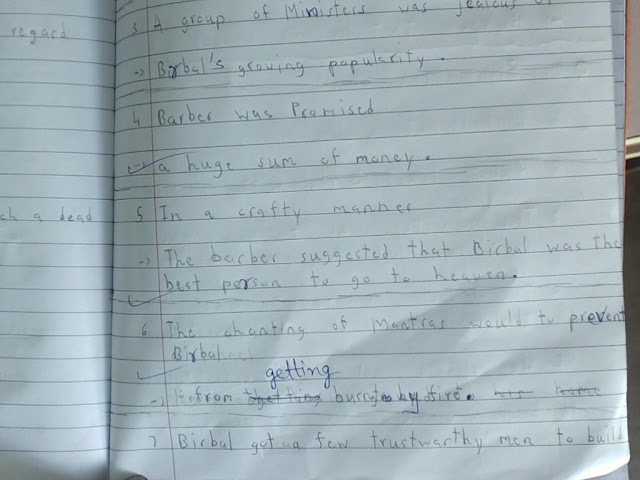 regard
ch a dead
3 A group of Ministers was jealous of
→ Birbal's growing popularity.
4 Barber was Promised
→ a huge sum of money.
5 In a crafty manner
→ The barber suggested that Birbal was the
best person to go to heaven.
6 The chanting of Mantras would to prevent
Birbal
getting
→ from by fire.
7 Birbal got a few trustwarthy men to build